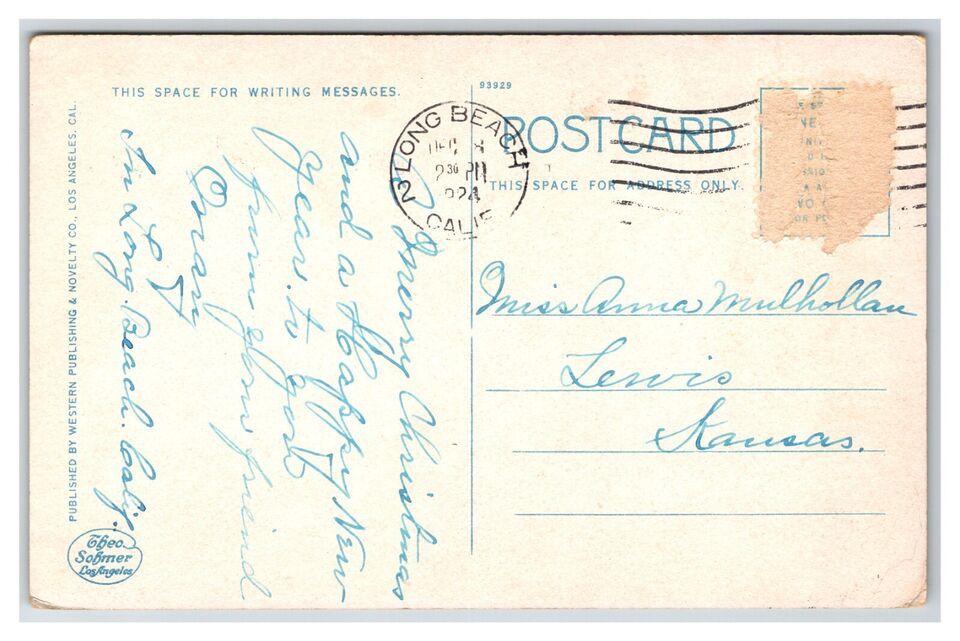 THIS SPACE FOR WRITING MESSAGES.
93929
POST CARD
THIS SPACE FOR ADDRESS ONLY.
LONG BEACH
DEC 8
2 30 PM
1924
CALIF
2
PUBLISHED BY WESTERN PUBLISHING & NOVELTY CO., LOS ANGELES, CAL.
A Merry Christmas
and a Happy New
Year. to you
from your friend
Loran
In Long. Beach. Calif.
Miss Anna Mulhollan
Lewis
Kansas.
Theo.
Sohmer
Los Angeles